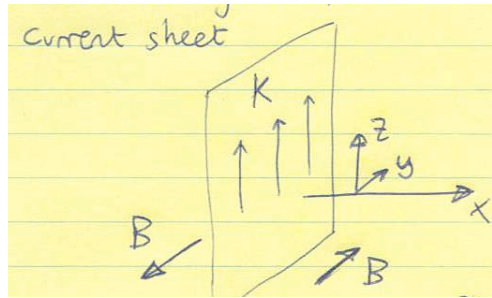 Current sheet
K
z
y
x
B
B